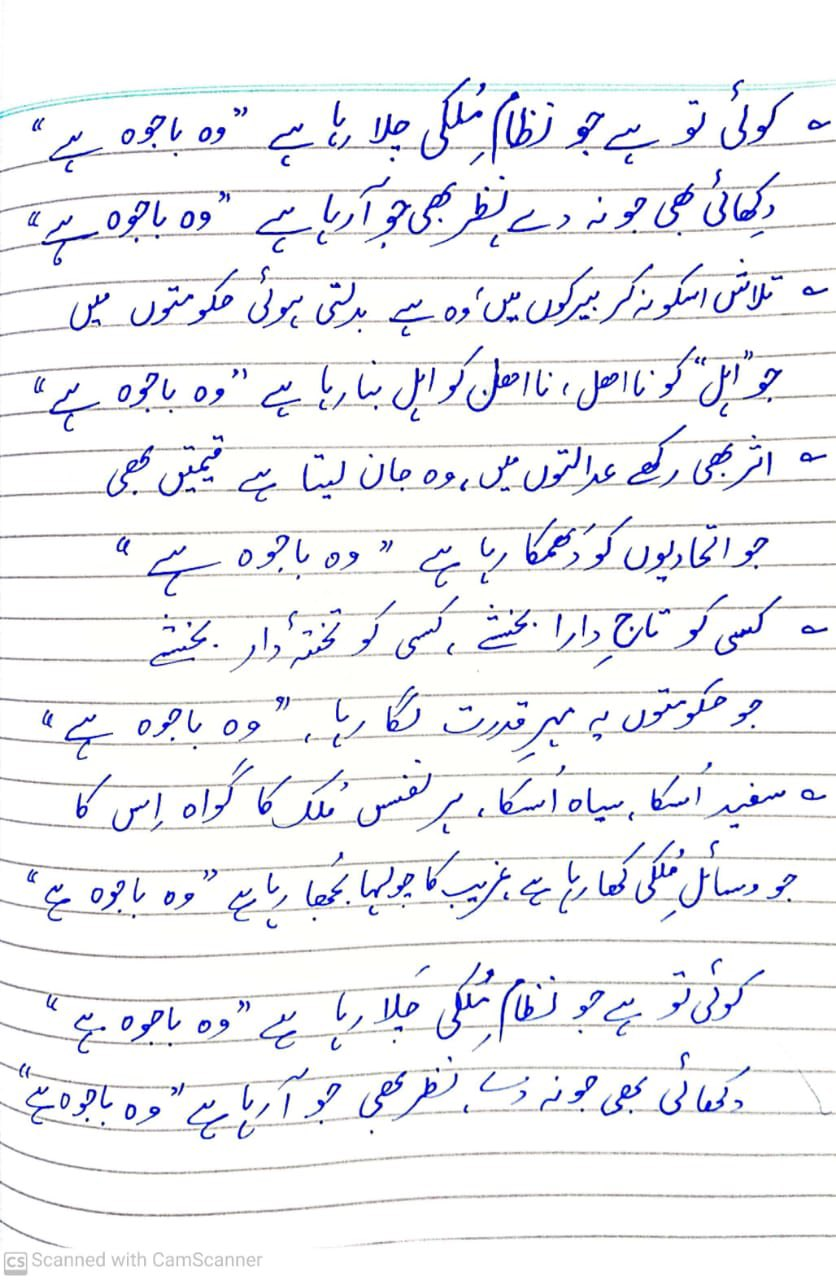 ؎ کوئی تو ہے جو نظامِ مُلکی چلا رہا ہے "وہ باجوہ ہے"
دِکھائی بھی جو نہ دے نظر بھی جو آرہا ہے "وہ باجوہ ہے"
؎ تلاش اسکو نہ کر بیرکوں میں، وہ ہے بدلتی ہوئی حکومتوں میں
جو "اہل" کو نااھل، نااھل کو اہل بنا رہا ہے "وہ باجوہ ہے"
؎ اثر بھی رکھے عدالتوں میں، وہ جان لیتا ہے قیمتیں بھی
جو اتحادیوں کو دَھمکا رہا ہے "وہ باجوہ ہے"
؎ کسی کو تاجِ دارا بخشے، کسی کو تختۂ دار بخشے
جو حکومتوں پہ مہرِ قدرت لگا رہا، "وہ باجوہ ہے"
؎ سفید اُسکا، سیاہ اُسکا، ہر نفس مُلک کا گواہ اِس کا
جو وسائلِ مُلکی کھا رہا ہے، غریب کا چولہا بُجھا رہا ہے "وہ باجوہ ہے"
کوئی تو ہے جو نظامِ مُلکی چَلا رہا ہے "وہ باجوہ ہے"
دکھائی بھی جو نہ دے، نظر بھی جو آرہا ہے "وہ باجوہ ہے"
CS Scanned with CamScanner